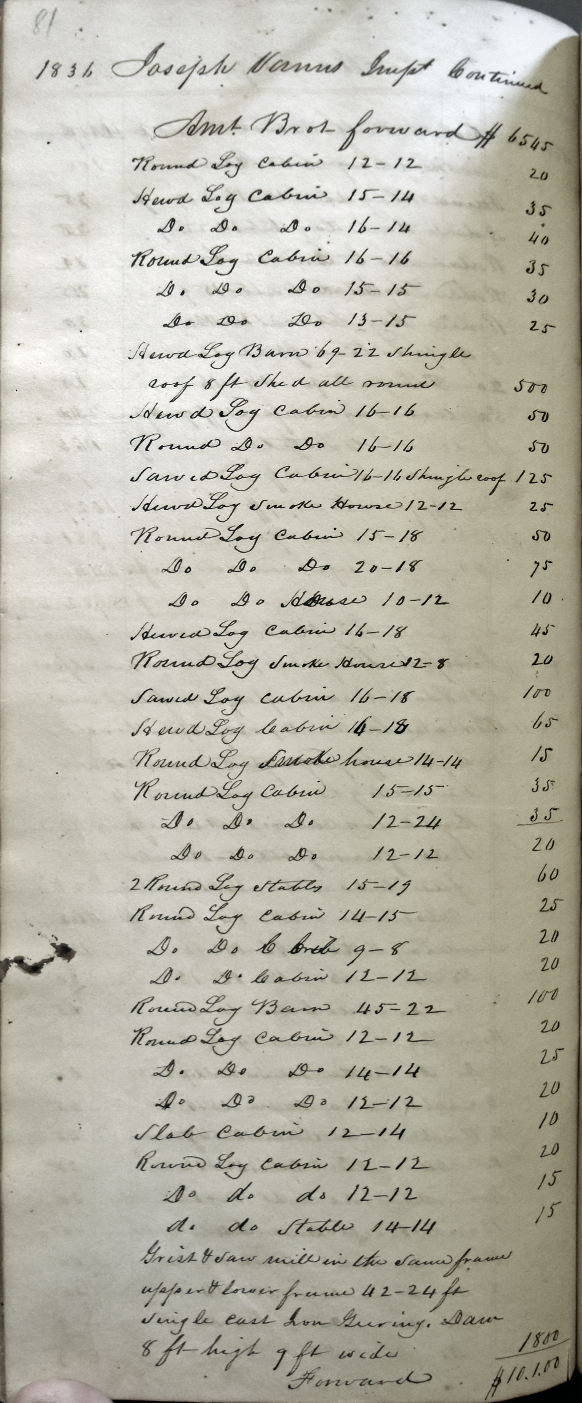 81
1836 Joseph Vanns Impt Continued
Amt. Brot forward $ 6545
Round Log Cabin 12-12 20
Hewd Log Cabin 15-14 35
Do. Do. Do. 16-14 40
Round Log Cabin 16-16 35
Do. Do Do 15-15 30
Do Do Do 13-15 25
Hewd Log Barn 69-22 Shingle
roof 8 ft Shed all round 500
Hewd Log Cabin 16-16 50
Round Do Do 16-16 50
Sawed Log Cabin 16-16 Shingle roof 125
Hewd Log Smoke House 12-12 25
Round Log Cabin 15-18 50
Do Do Do 20-18 75
Do Do House 10-12 10
Hewed Log Cabin 16-18 45
Round Log Smoke House 12-8 20
Sawed Log Cabin 16-18 100
Hewd Log Cabin 16-18 65
Round Log Smoke house 14-14 15
Round Log Cabin 15-15 35
Do. Do. Do. 12-24 35
Do Do Do 12-12 20
2 Round Log Stables 15-19 60
Round Log Cabin 14-15 25
Do. Do C Crib 9-8 20
Do. Do Cabin 12-12 20
Round Log Barn 45-22 100
Round Log Cabin 12-12 20
Do. Do Do 14-14 25
Do Do Do 12-12 20
Slab Cabin 12-14 10
Round Log Cabin 12-12 20
Do do do 12-12 15
do do Stable 14-14 15
Grist & Saw mill in the same frame
upper & lower frame 42-24 ft
single cast Iron Geering. Dam
8 ft high 9 ft wide 1800
Forward $10.1.00